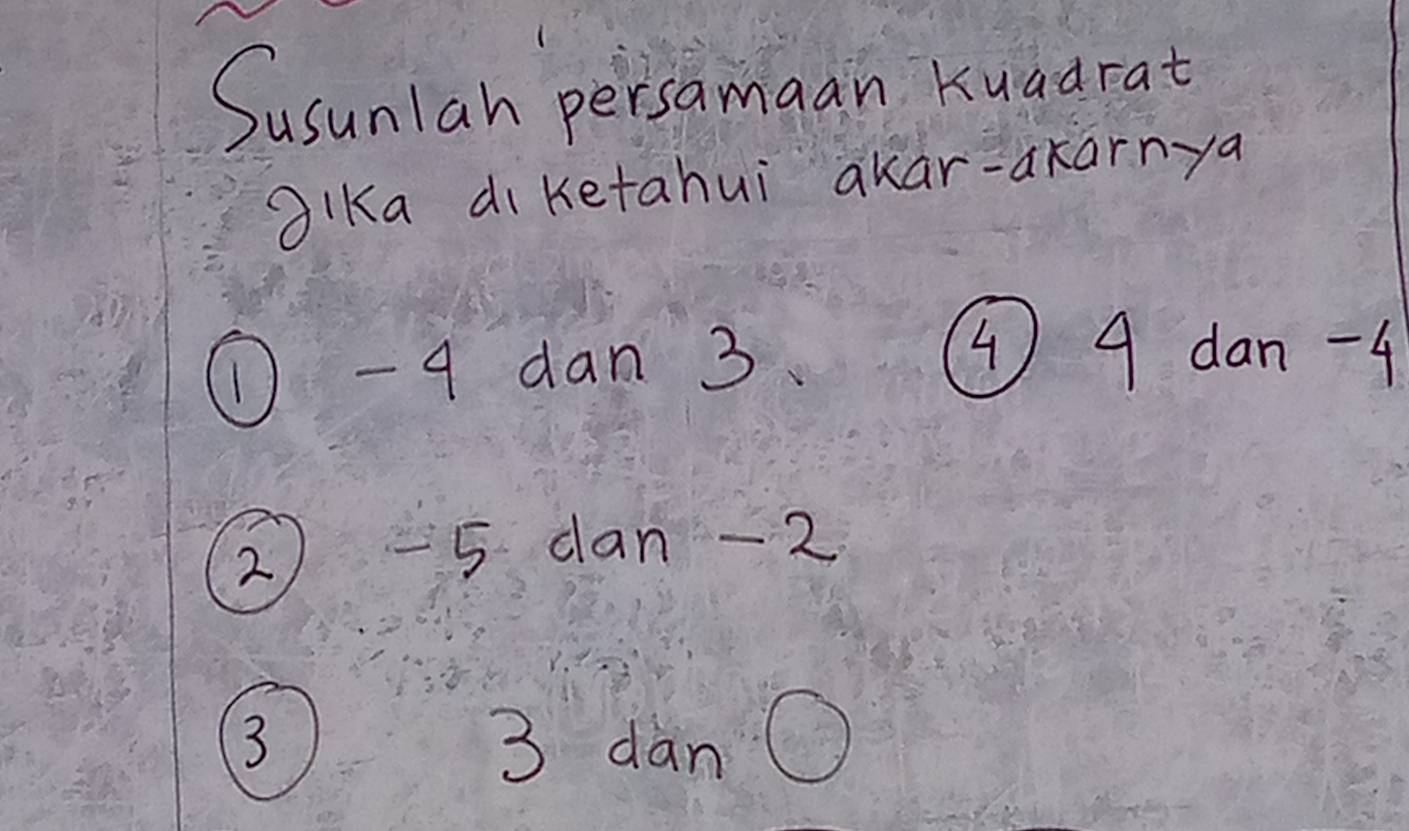 Susunlah persamaan kuadrat
jika diketahui akar-akarnya
① -4 dan 3. ④ 4 dan -4
② -5 dan -2
③ 3 dan 0